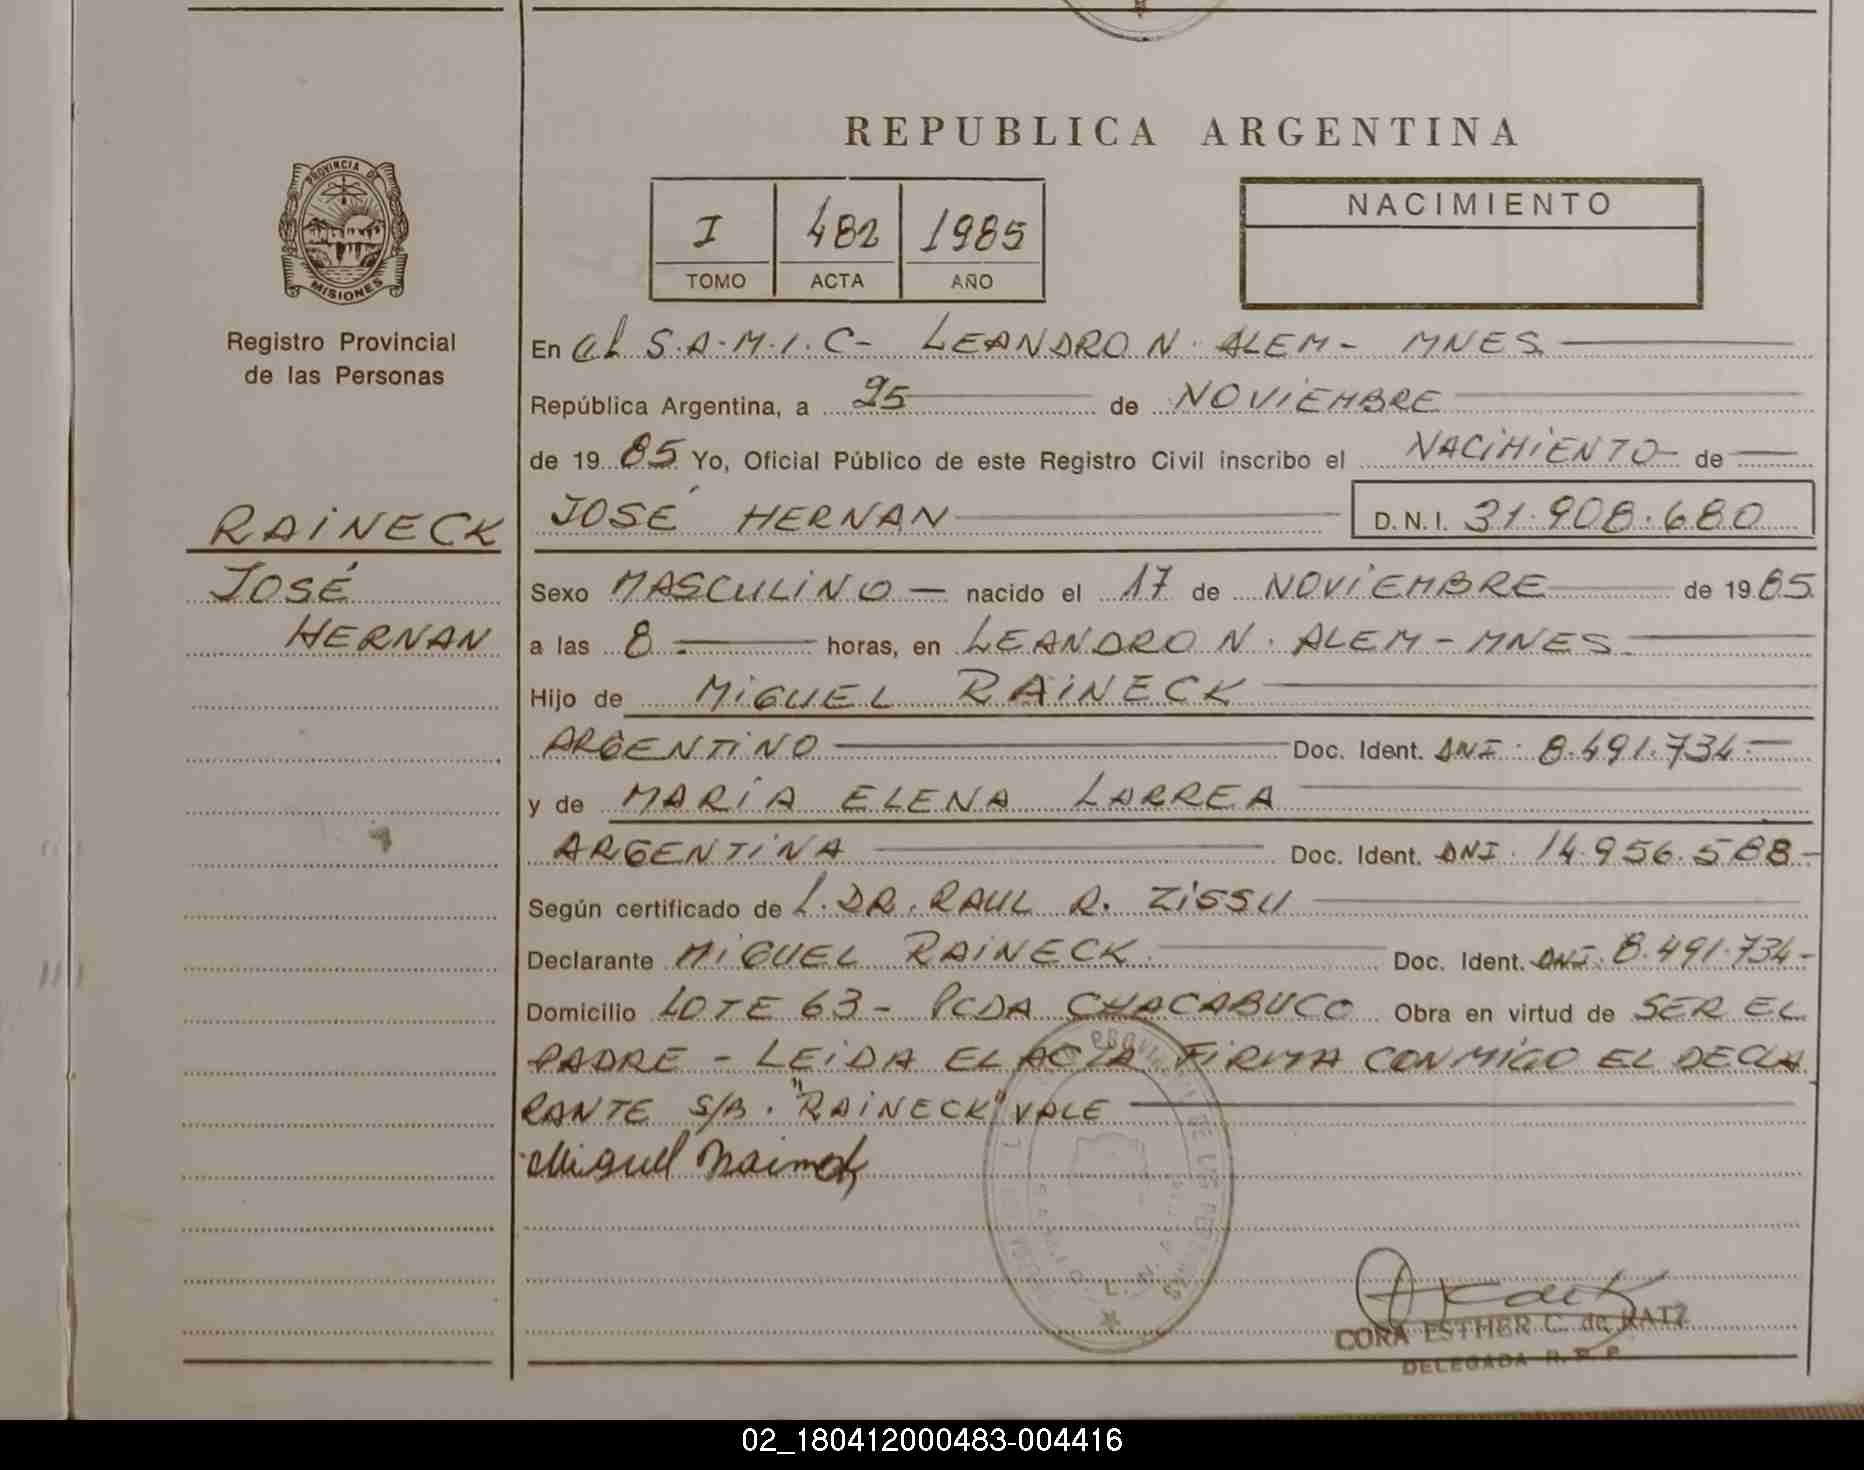 REPUBLICA ARGENTINA
PROVINCIA DE
MISIONES
Registro Provincial
de las Personas
I 482 1985
TOMO ACTA AÑO
NACIMIENTO
En el S.A.M.I.C- LEANDRO N. ALEM- MNES
República Argentina, a 25 de NOVIEMBRE
de 19 85 Yo, Oficial Público de este Registro Civil inscribo el NACIMIENTO de
RAINECK
JOSÉ HERNAN D.N.I. 31.908.680
JOSÉ
HERNAN
Sexo MASCULINO — nacido el 17 de NOVIEMBRE de 19 85
a las 8 horas, en LEANDRO N. ALEM - MNES
Hijo de MIGUEL RAINECK
ARGENTINO Doc. Ident. DNI: 8.491.734-
y de MARÍA ELENA LARREA
ARGENTINA Doc. Ident. DNI. 14.956.588-
Según certificado de L. DR. RAUL R. ZISSU
Declarante MIGUEL RAINECK Doc. Ident. DNI. 8.491.734-
Domicilio LOTE 63 - PCDA CHACABUCO Obra en virtud de SER EL
PADRE - LEIDA EL ACTA FIRMA CONMIGO EL DECLA
RANTE S/B. "RAINECK" VALE
Miguel Raineck
CORA ESTHER C. de KATZ
DELEGADA R. P. P.
02_180412000483-004416